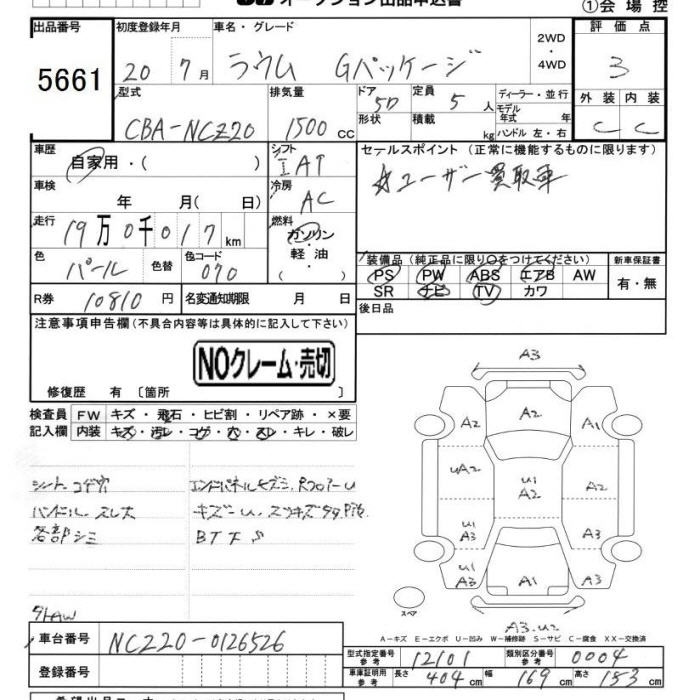 オークション出品申込書
①会場控
出品番号 5661
初度登録年月 20 7月
車名・グレード ラウム Gパッケージ
2WD・4WD
評価点 3
外装 C 内装 C
型式 CBA-NCZ20
排気量 1500 cc
ドア 5D 形状
定員 5 人 積載 kg
ディーラー・並行
モデル年式 年
ハンドル 左・右
車歴 自家用・( )
シフト IAT
車検 年 月( 日)
冷房 AC
走行 19万0千017km
燃料 ガソリン・軽油・( )
色 パール 色替 色コード 070
R券 10810円 名変通知期限 月 日
セールスポイント (正常に機能するものに限ります)
ユーザー買取車
装備品 (純正品に限り○をつけてください)
PS PW ABS エアB AW
SR ナビ TV カワ
新車保証書 有・無
後日品
注意事項申告欄(不具合内容等は具体的に記入して下さい)
NOクレーム・売切
修復歴 有 〔箇所 〕
検査員記入欄
FW キズ・飛石・ヒビ割・リペア跡・×要
内装 キズ・汚レ・コゲ・穴・スレ・キレ・破レ
シート コゲ穴
ハンドル スレ大
各部シミ
キズーU
BTFS
A3
A2 A2 A1
UA2 U1 A2 A2
U1 A3 A3
U1 A3 A1
スペア
A3.U2
A-キズ E-エクボ U-凹み W-補修跡 S-サビ C-腐食 XX-交換済
車台番号 NCZ20-0126526
登録番号
型式指定番号 参考 12101
類別区分番号 参考 0004
車庫証明用 参考 長さ 404 cm 幅 169 cm 高さ 153 cm